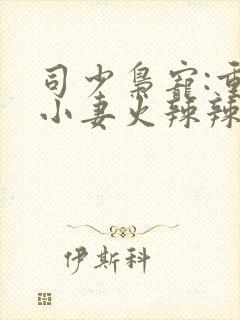 司少枭宠:重
小妻火辣辣
伊斯科